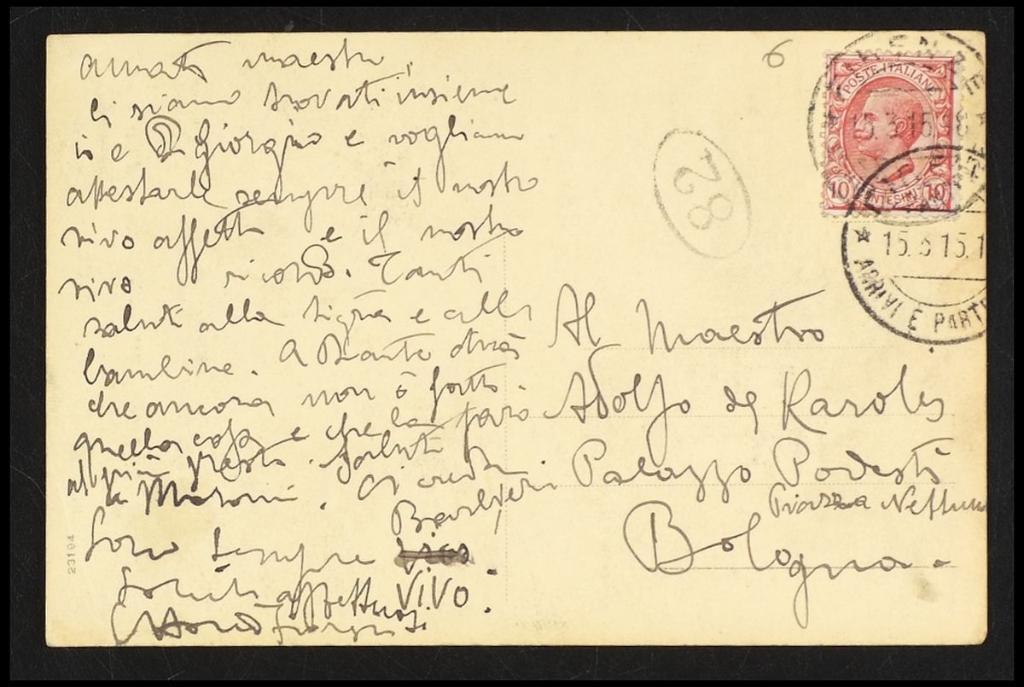 amato maestro,
ci siamo trovati insieme
io e Di Giorgio e vogliamo
attestarle sempre il nostro
vivo affetto e il nostro
vivo ricordo. Tanti
saluti alla Sigra e alle
bambine. A Dante dirà
che ancora non ò fatto
quella cosa e che la farò
al più presto. Saluti
a Maroni. Ci creda
Barbieri
Sono sempre
VIVO.
Saluti affettuosi
6
82
POSTE ITALIANE
10 CENTESIMI 10
FIRENZE
15.3 15.18
15.3 15.1
ARRIVI E PART
Al Maestro
Adolfo de Karolis
Palazzo Podestà
Piazza Nettuno
Bologna.
23194